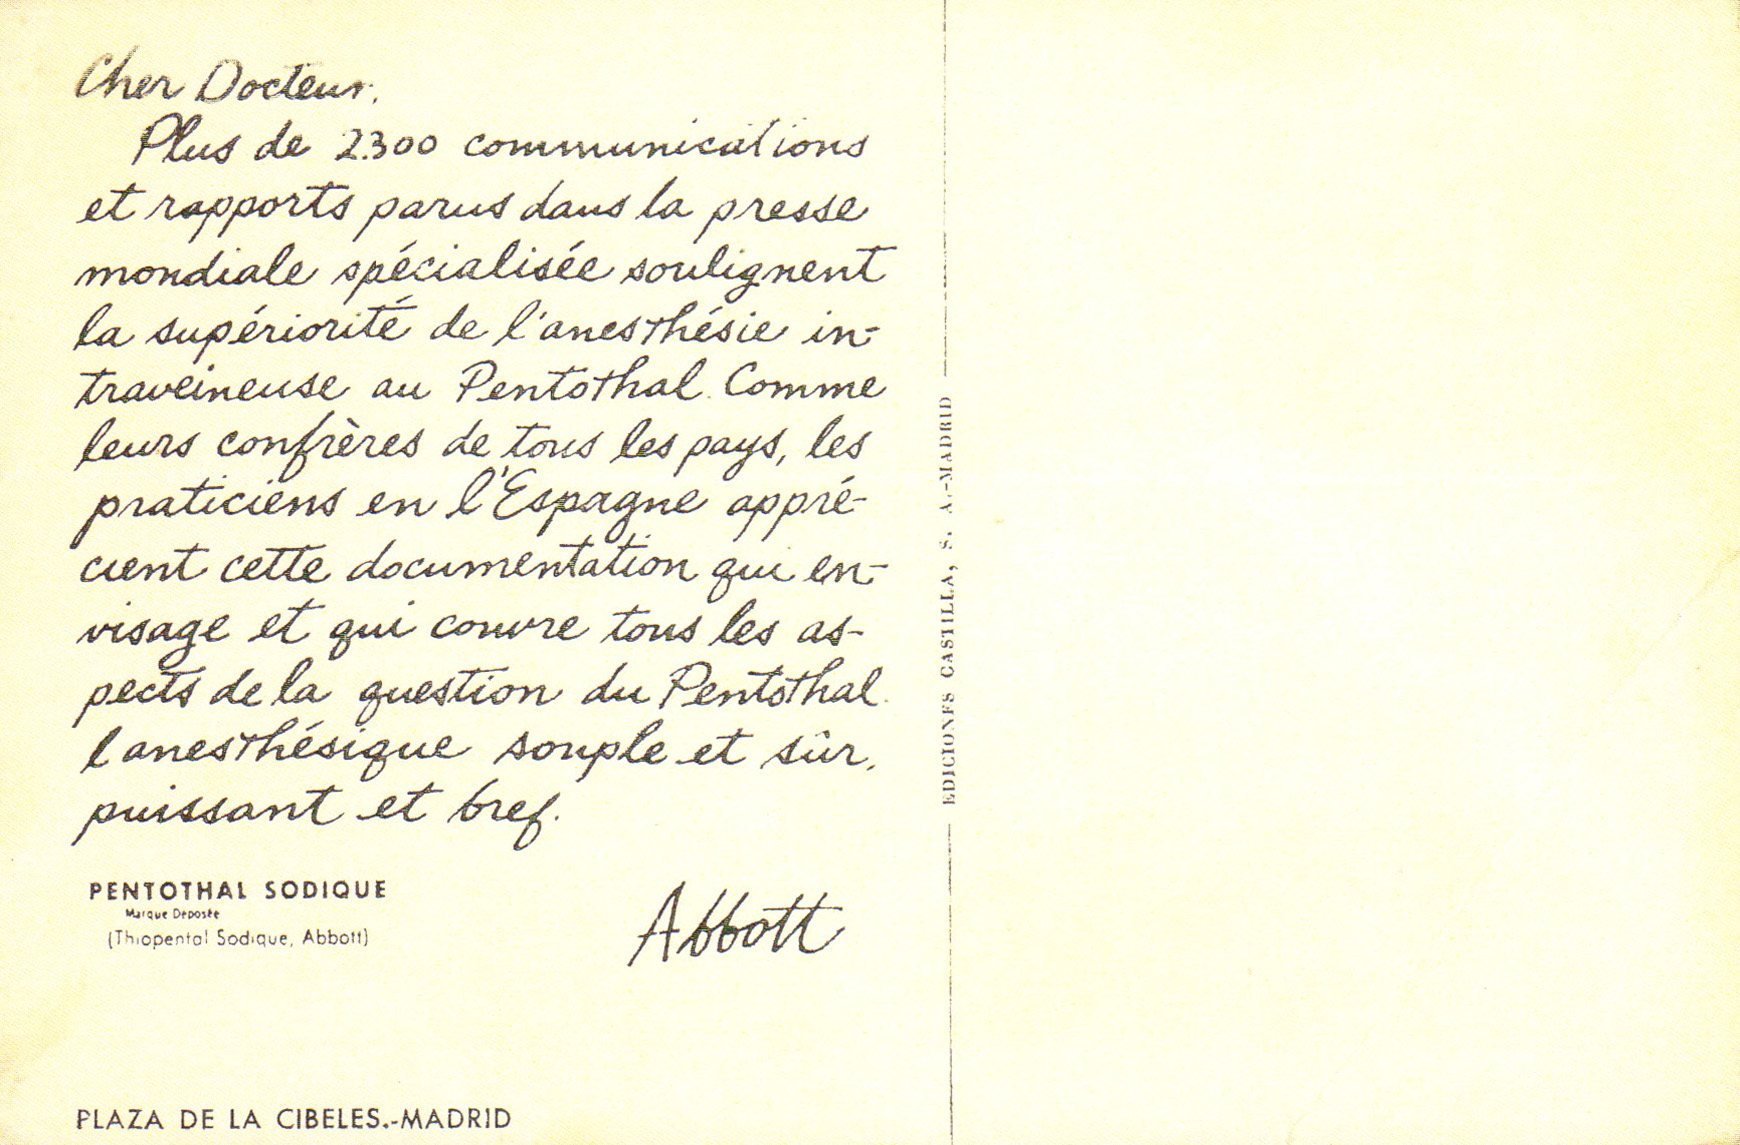 Cher Docteur,
Plus de 2.300 communications
et rapports parus dans la presse
mondiale spécialisée soulignent
la supériorité de l'anesthésie in-
traveineuse au Pentothal. Comme
leurs confrères de tous les pays, les
praticiens en l'Espagne appré-
cient cette documentation qui en-
visage et qui couvre tous les as-
pects de la question du Pentothal.
l'anesthésique souple et sûr,
puissant et bref.
PENTOTHAL SODIQUE
Marque Déposée
(Thiopental Sodique, Abbott)
Abbott
PLAZA DE LA CIBELES.-MADRID
EDICIONES CASTILLA, S. A.-MADRID